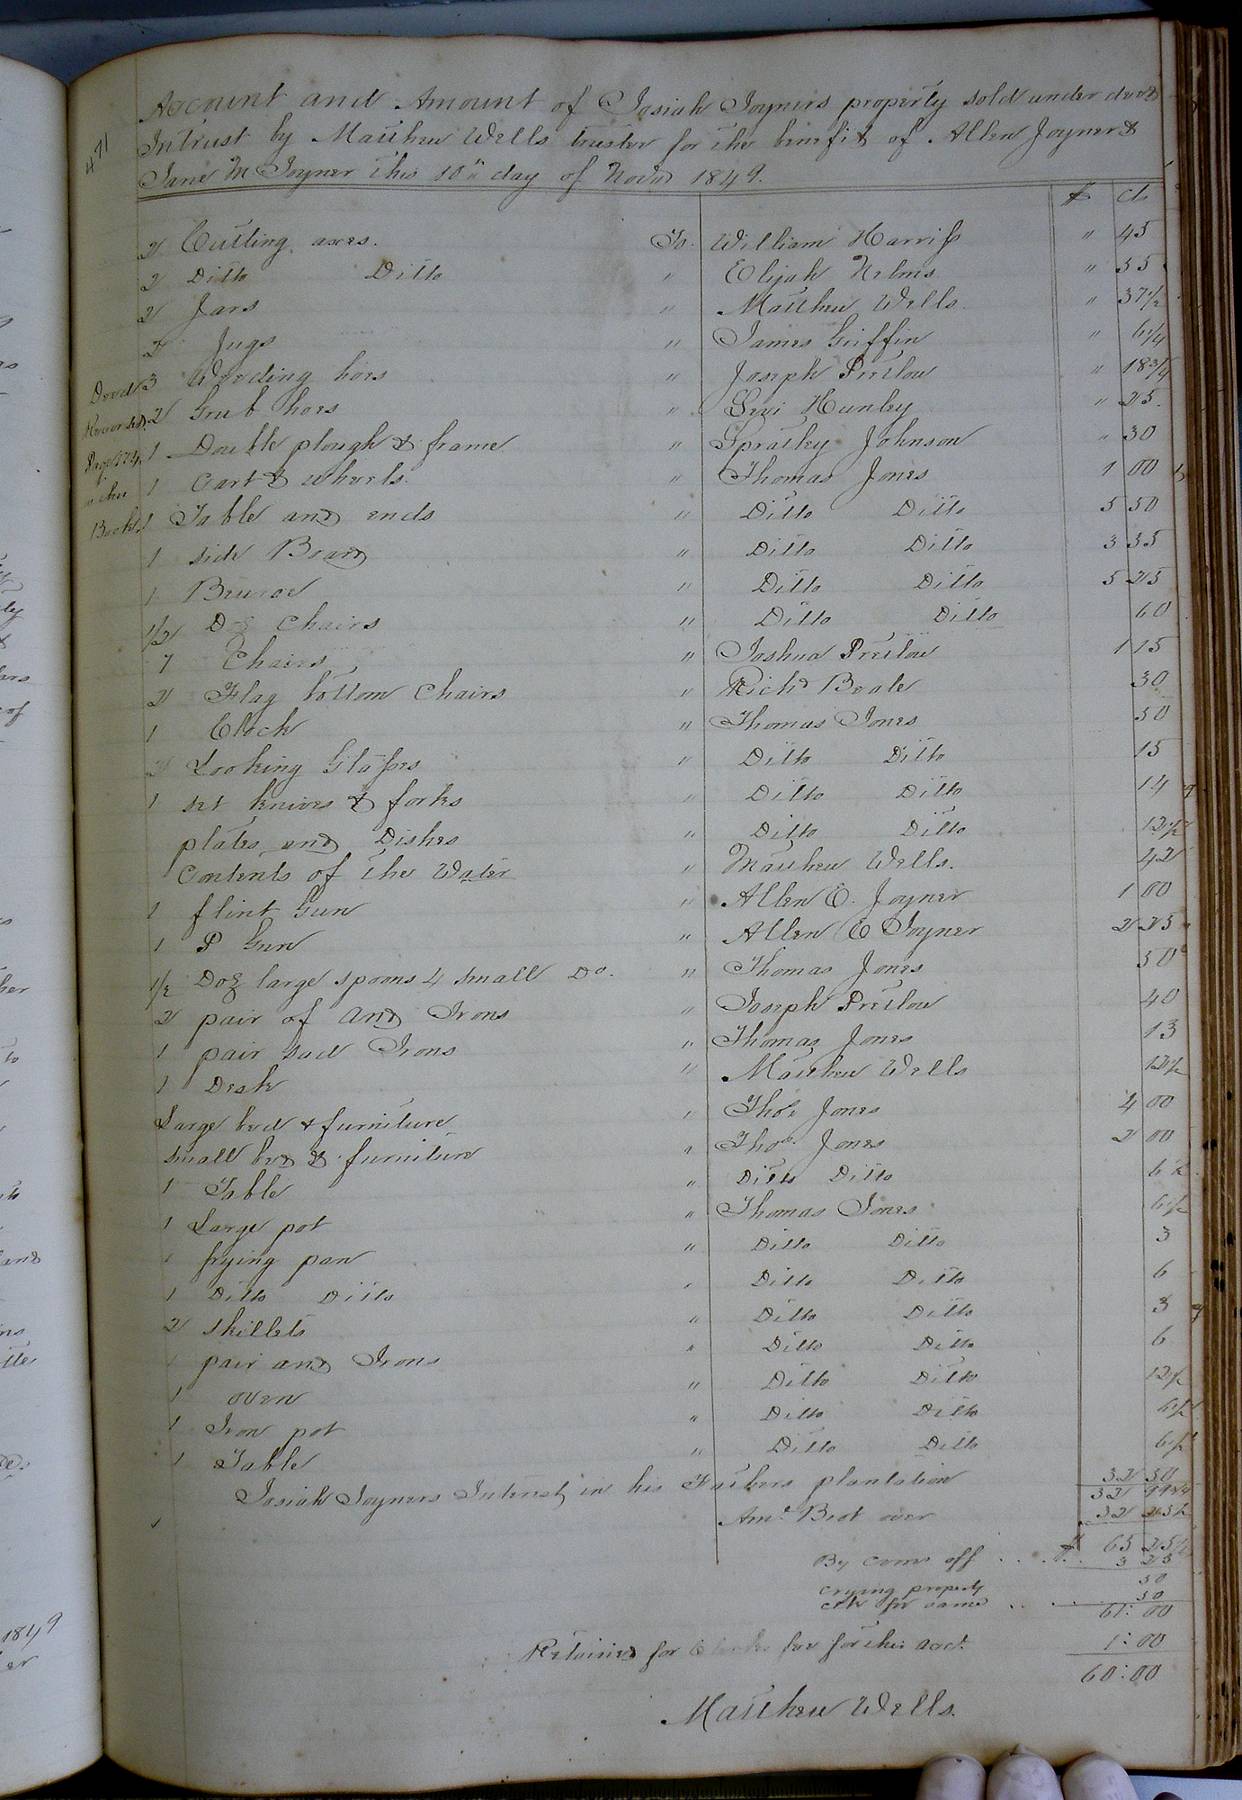 471
Account and Amount of Josiah Joyners property sold under deed
Intrust by Matthew Wells truster for the benifit of Allen Joyner &
Jane M Joyner this 10th day of Novr 1849.
$ cts
2 Cutting axes. To William Harriss " 45
2 Ditto Ditto " Elijah Nelms " 55
2 Jars " Matthew Wells. " 37 1/2
2 Jugs " James Griffin " 6 1/4
3 Weeding hoes " Joseph Pretlow " 18 3/4
2 Grub hoes " Levi Hunley " 25.
1 Double plough & frame " Spratley Johnson " 30
1 Cart & wheels. " Thomas Jones 1 00
1 Table and ends " Ditto Ditto 5 50
1 side Board " Ditto Ditto 3 35
1 Beuroe " Ditto Ditto 5 25
1/2 Doz Chairs " Ditto Ditto 60
7 Chairs " Joshua Pretlow 1 15
2 Flag bottom Chairs " Richd Beale 30
1 Clock " Thomas Jones 50
2 Looking Glasses " Ditto Ditto 15
1 set knives & forks " Ditto Ditto 14
plates and Dishes " Ditto Ditto 12 1/2
Contents of the Water " Matthew Wells. 42
1 flint Gun " Allen E. Joyner 1 00
1 P Gun " Allen E Joyner 2 25
1/2 Doz large spoons 4 small Do. " Thomas Jones 50
2 pair of And Irons " Joseph Pretlow 40
1 pair sad Irons " Thomas Jones 13
1 Desk " Matthew Wells 12 1/2
Large bed & furniture " Thos Jones 4 00
small bed & furniture " Thos Jones 2 00
1 Table " Ditto Ditto 6 1/2
1 Large pot " Thomas Jones 6 1/2
1 frying pan " Ditto Ditto 3
1 Ditto Ditto " Ditto Ditto 6
2 skillets " Ditto Ditto 3
1 pair and Irons " Ditto Ditto 6
1 oven " Ditto Ditto 12 1/2
1 Iron pot " Ditto Ditto 6 1/2
1 Table " Ditto Ditto 6 1/2
Josiah Joyners Interest, in his Fathers plantation 32 50
32
Amt Brot over 32
$ 65 25 1/2
By coms off 3 25
crying property 50
clk for same 50
61:00
Retained for fee for this acct. 1:00
60:00
Matthew Wells.
Deed
Recorded
Page 174
in the
Book